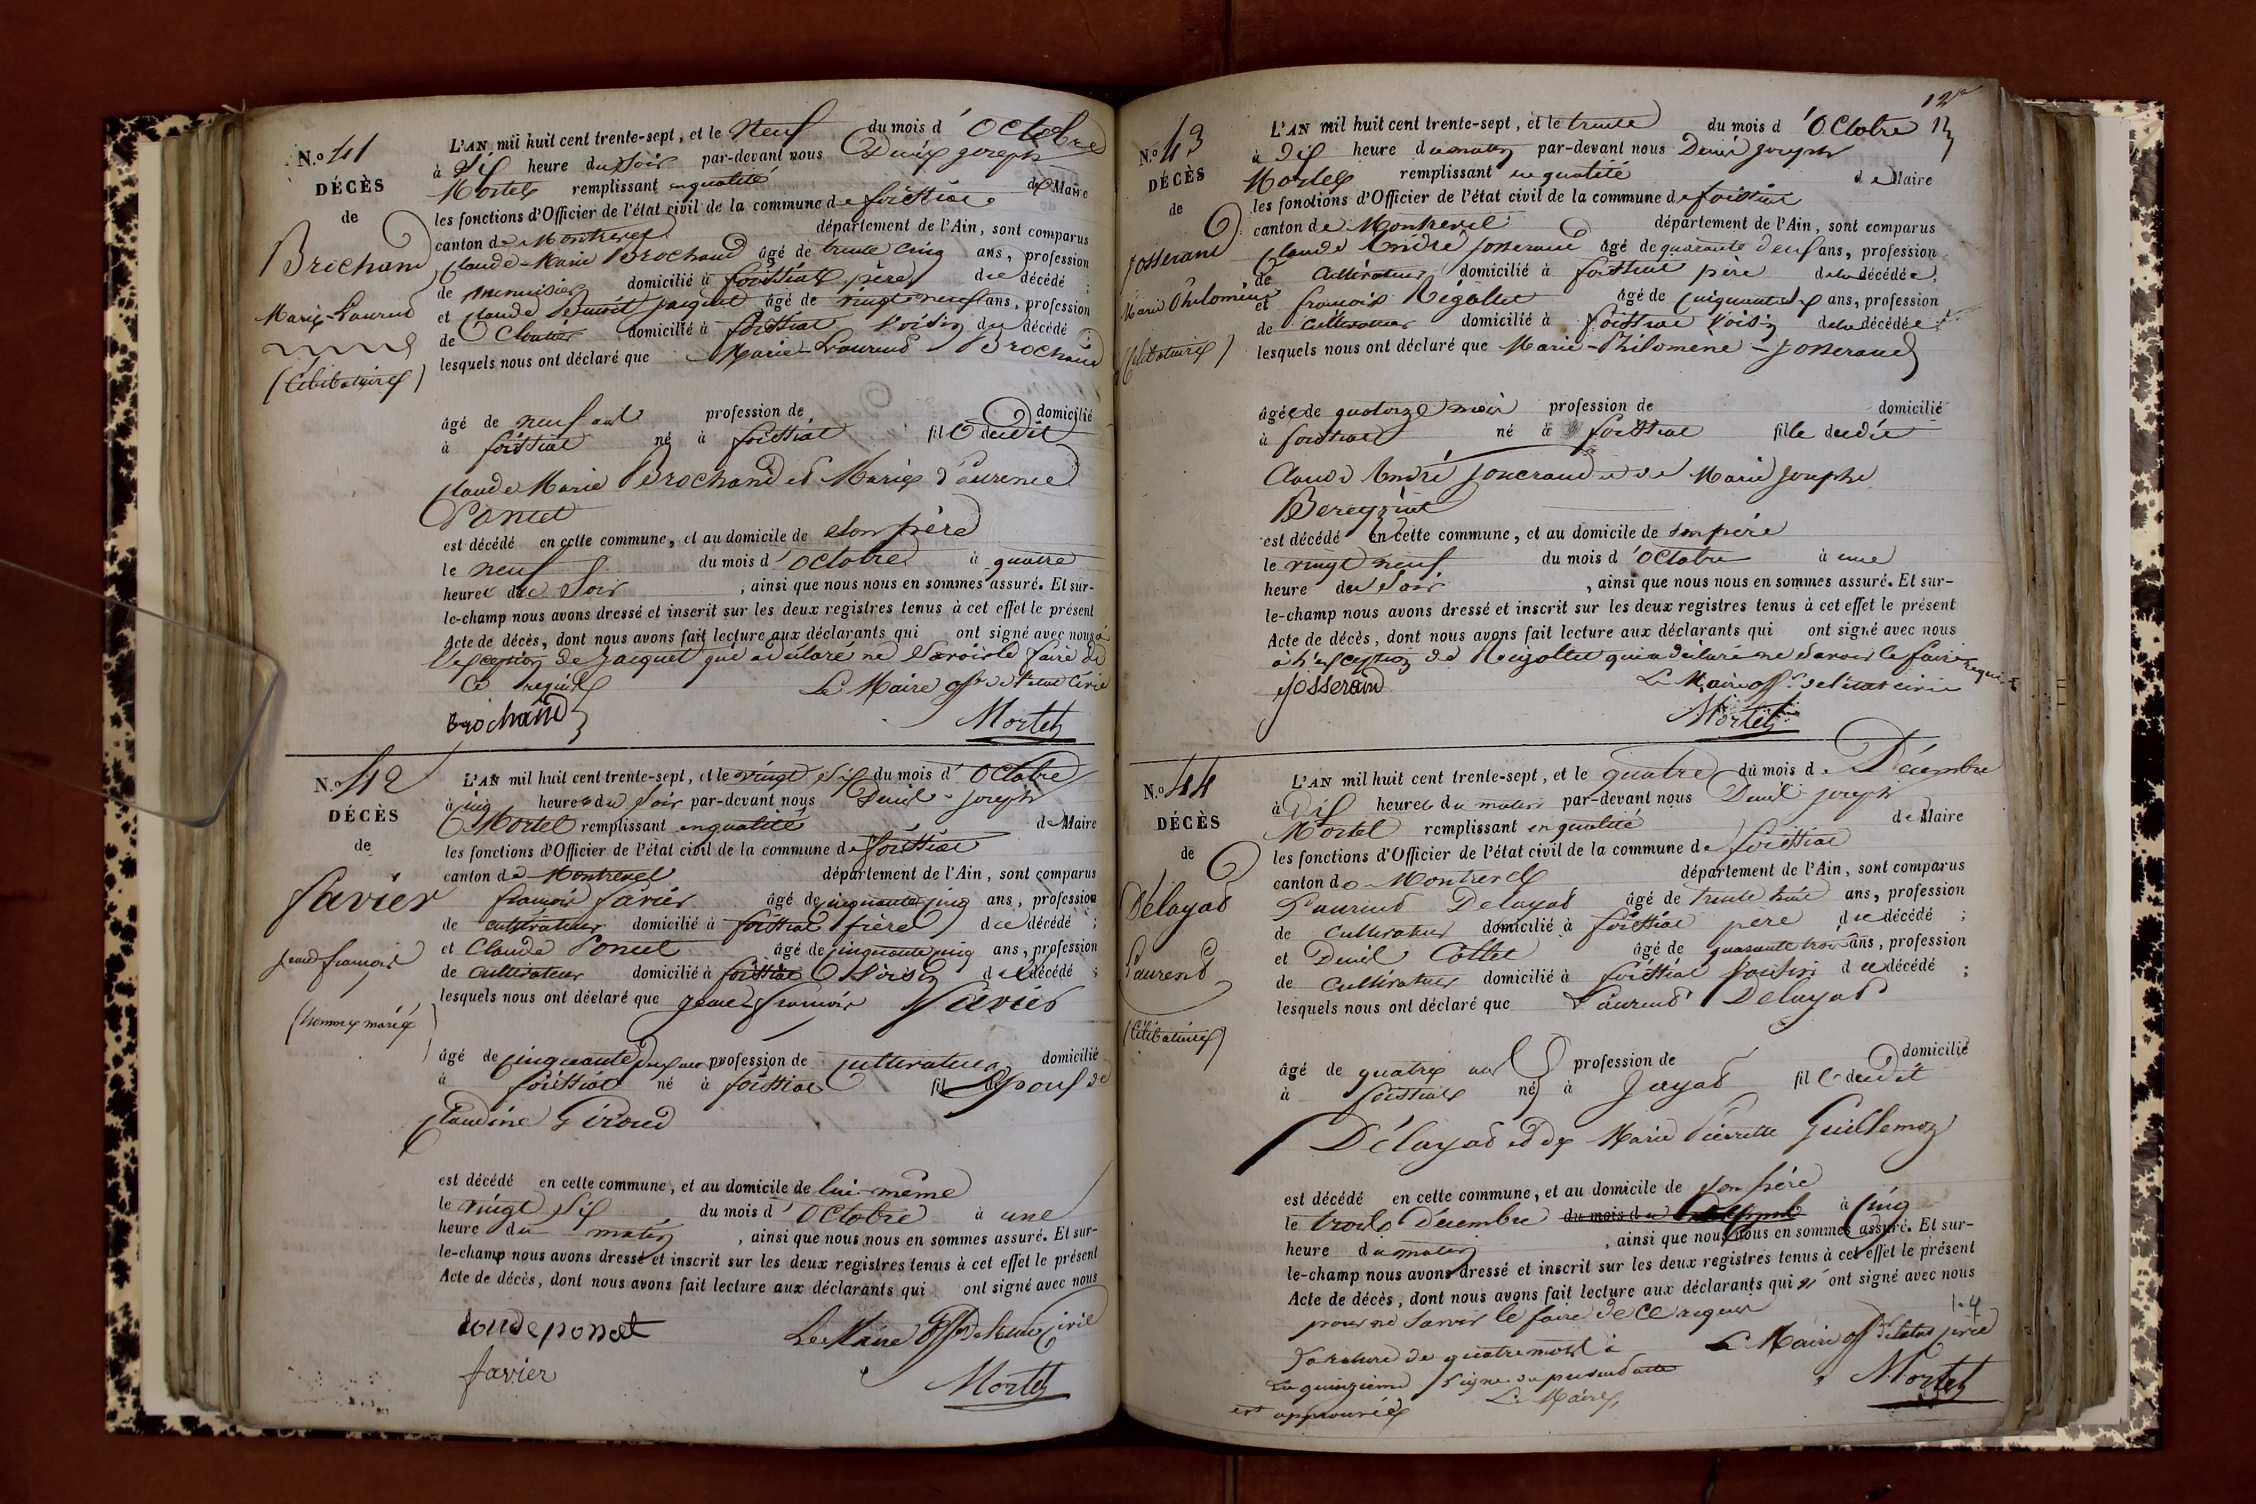 N.o 41
DÉCÈS
de
Brochand
Marie-Laurend
(Célibataire)
L'AN mil huit cent trente-sept, et le neuf du mois d'Octobre
à six heure du soir par-devant nous Deniz joseph
Mortel remplissant en qualité de Maire
les fonctions d'Officier de l'état civil de la commune de foissiat
canton de Montrevel département de l'Ain, sont comparus
Claude-Marie Brochand âgé de trente cinq ans, profession
de menuisier domicilié à foissiat père du décédé ;
et Claude Benoit jacquet âgé de vingt neuf ans, profession
de Cloutier domicilié à foissiat voisin du décédé ;
lesquels nous ont déclaré que Marie-Laurend Brochand
âgé de neuf ans profession de domicilié
à foissiat né à foissiat fils dudit
Claude Marie Brochand et Marie Laurence
Poncet
est décédé en cette commune, et au domicile de son père
le neuf du mois d'octobre à quatre
heure du soir, ainsi que nous nous en sommes assuré. Et sur-
le-champ nous avons dressé et inscrit sur les deux registres tenus à cet effet le présent
Acte de décès, dont nous avons fait lecture aux déclarants qui ont signé avec nous à
l'exception de jacquet qui a déclaré ne savoir le faire de
ce requis Le Maire off. de l'état civil
Brochand Mortel
N.o 42
DÉCÈS
de
favier
jean françois
(homme marié)
L'AN mil huit cent trente-sept, et le vingt six du mois d'Octobre
à cinq heure du soir par-devant nous Deniz joseph
Mortel remplissant en qualité de Maire
les fonctions d'Officier de l'état civil de la commune de foissiat
canton de Montrevel département de l'Ain, sont comparus
françois favier âgé de cinquante cinq ans, profession
de cultivateur domicilié à foissiat frère du décédé ;
et Claude Poncet âgé de cinquante cinq ans, profession
de cultivateur domicilié à foissiat voisin du décédé ;
lesquels nous ont déclaré que jean françois favier
âgé de cinquante deux ans profession de cultivateur domicilié
à foissiat né à foissiat fil époux de
Claudine Giroud
est décédé en cette commune, et au domicile de lui-même
le vingt six du mois d'Octobre à une
heure du matin, ainsi que nous nous en sommes assuré. Et sur-
le-champ nous avons dressé et inscrit sur les deux registres tenus à cet effet le présent
Acte de décès, dont nous avons fait lecture aux déclarants qui ont signé avec nous
Le Maire off. de l'état civil
favier Mortel
N.o 43
DÉCÈS
de
Josserand
Marie Philomène
(Célibataire)
L'AN mil huit cent trente-sept, et le trente du mois d'Octobre
à dix heure du matin par-devant nous Deniz joseph
Mortel remplissant en qualité de Maire
les fonctions d'Officier de l'état civil de la commune de foissiat
canton de Montrevel département de l'Ain, sont comparus
Claude André josserand âgé de quarante deux ans, profession
de cultivateur domicilié à foissiat père de la décédée ;
et françois Rigollet âgé de ans, profession
de cultivateur domicilié à foissiat voisin de la décédée ;
lesquels nous ont déclaré que Marie-Philomène-josserand
âgée de quatorze mois profession de domicilié
à foissiat né à foissiat fille dudit
Claude André josserand et de Marie josephe
est décédé en cette commune, et au domicile de son père
le vingt neuf du mois d'Octobre à une
heure du soir, ainsi que nous nous en sommes assuré. Et sur-
le-champ nous avons dressé et inscrit sur les deux registres tenus à cet effet le présent
Acte de décès, dont nous avons fait lecture aux déclarants qui ont signé avec nous
à l'exception de Rigollet qui a déclaré ne savoir le faire requis
josserand Le Maire off. de l'état civil
Mortel
N.o 44
DÉCÈS
de
Délayad
Laurend
(Célibataire)
L'AN mil huit cent trente-sept, et le quatre du mois de Décembre
à dix heure du matin par-devant nous Deniz joseph
Mortel remplissant en qualité de Maire
les fonctions d'Officier de l'état civil de la commune de foissiat
canton de Montrevel département de l'Ain, sont comparus
Laurend Delayad âgé de trente huit ans, profession
de cultivateur domicilié à foissiat père du décédé ;
et Deniz Collet âgé de quarante trois ans, profession
de cultivateur domicilié à foissiat voisin du décédé ;
lesquels nous ont déclaré que Laurend Delayad
âgé de quatre ans profession de domicilié
à foissiat né à jayat fils dudit
Délayad et de Marie Pierrette Guillemoz
est décédé en cette commune, et au domicile de son père
le trois Décembre du mois d à cinq
heure du matin, ainsi que nous nous en sommes assuré. Et sur-
le-champ nous avons dressé et inscrit sur les deux registres tenus à cet effet le présent
Acte de décès, dont nous avons fait lecture aux déclarants qui n'ont signé avec nous
pour ne savoir le faire de ce requis
Le Maire off. de l'état civil
La rature de quatre mots à
la quinzième ligne du présent acte
est approuvée Le Maire
Mortel